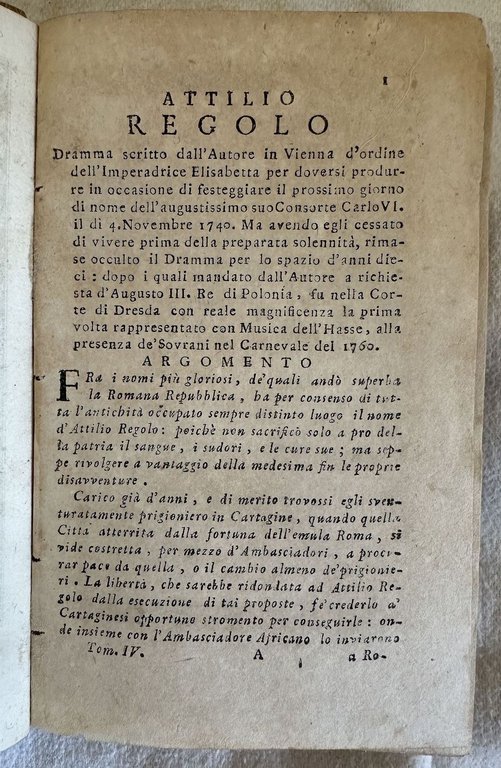 1
ATTILIO
REGOLO
Dramma scritto dall'Autore in Vienna d'ordine
dell'Imperadrice Elisabetta per doversi produr-
re in occasione di festeggiare il prossimo giorno
di nome dell'augustissimo suo Consorte Carlo VI.
il dì 4. Novembre 1740. Ma avendo egli cessato
di vivere prima della preparata solennità, rima-
se occulto il Dramma per lo spazio d'anni die-
ci: dopo i quali mandato dall'Autore a richie-
sta d'Augusto III. Re di Polonia, fu nella Cor-
te di Dresda con reale magnificenza la prima
volta rappresentato con Musica dell'Hasse, alla
presenza de'Sovrani nel Carnevale del 1760.
ARGOMENTO
FRa i nomi più gloriosi, de'quali andò superba
la Romana Repubblica, ha per consenso di tut-
ta l'antichità occupato sempre distinto luogo il nome
d'Attilio Regolo: poichè non sacrificò solo a pro del-
la patria il sangue, i sudori, e le cure sue; ma sep-
pe rivolgere a vantaggio della medesima fin le proprie
disavventure.
Carico già d'anni, e di merito trovossi egli sven-
turatamente prigioniero in Cartagine, quando quella
Città atterrita dalla fortuna dell'emula Roma, si
vide costretta, per mezzo d'Ambasciadori, a procu-
rar pace da quella, o il cambio almeno de'prigionie-
ri. La libertà, che sarebbe ridondata ad Attilio Re-
golo dalla esecuzione di tai proposte, fe' crederlo a'
Cartaginesi opportuno stromento per conseguirle: on-
de insieme con l'Ambasciadore Africano lo inviarono
Tom. IV. A a Ro-